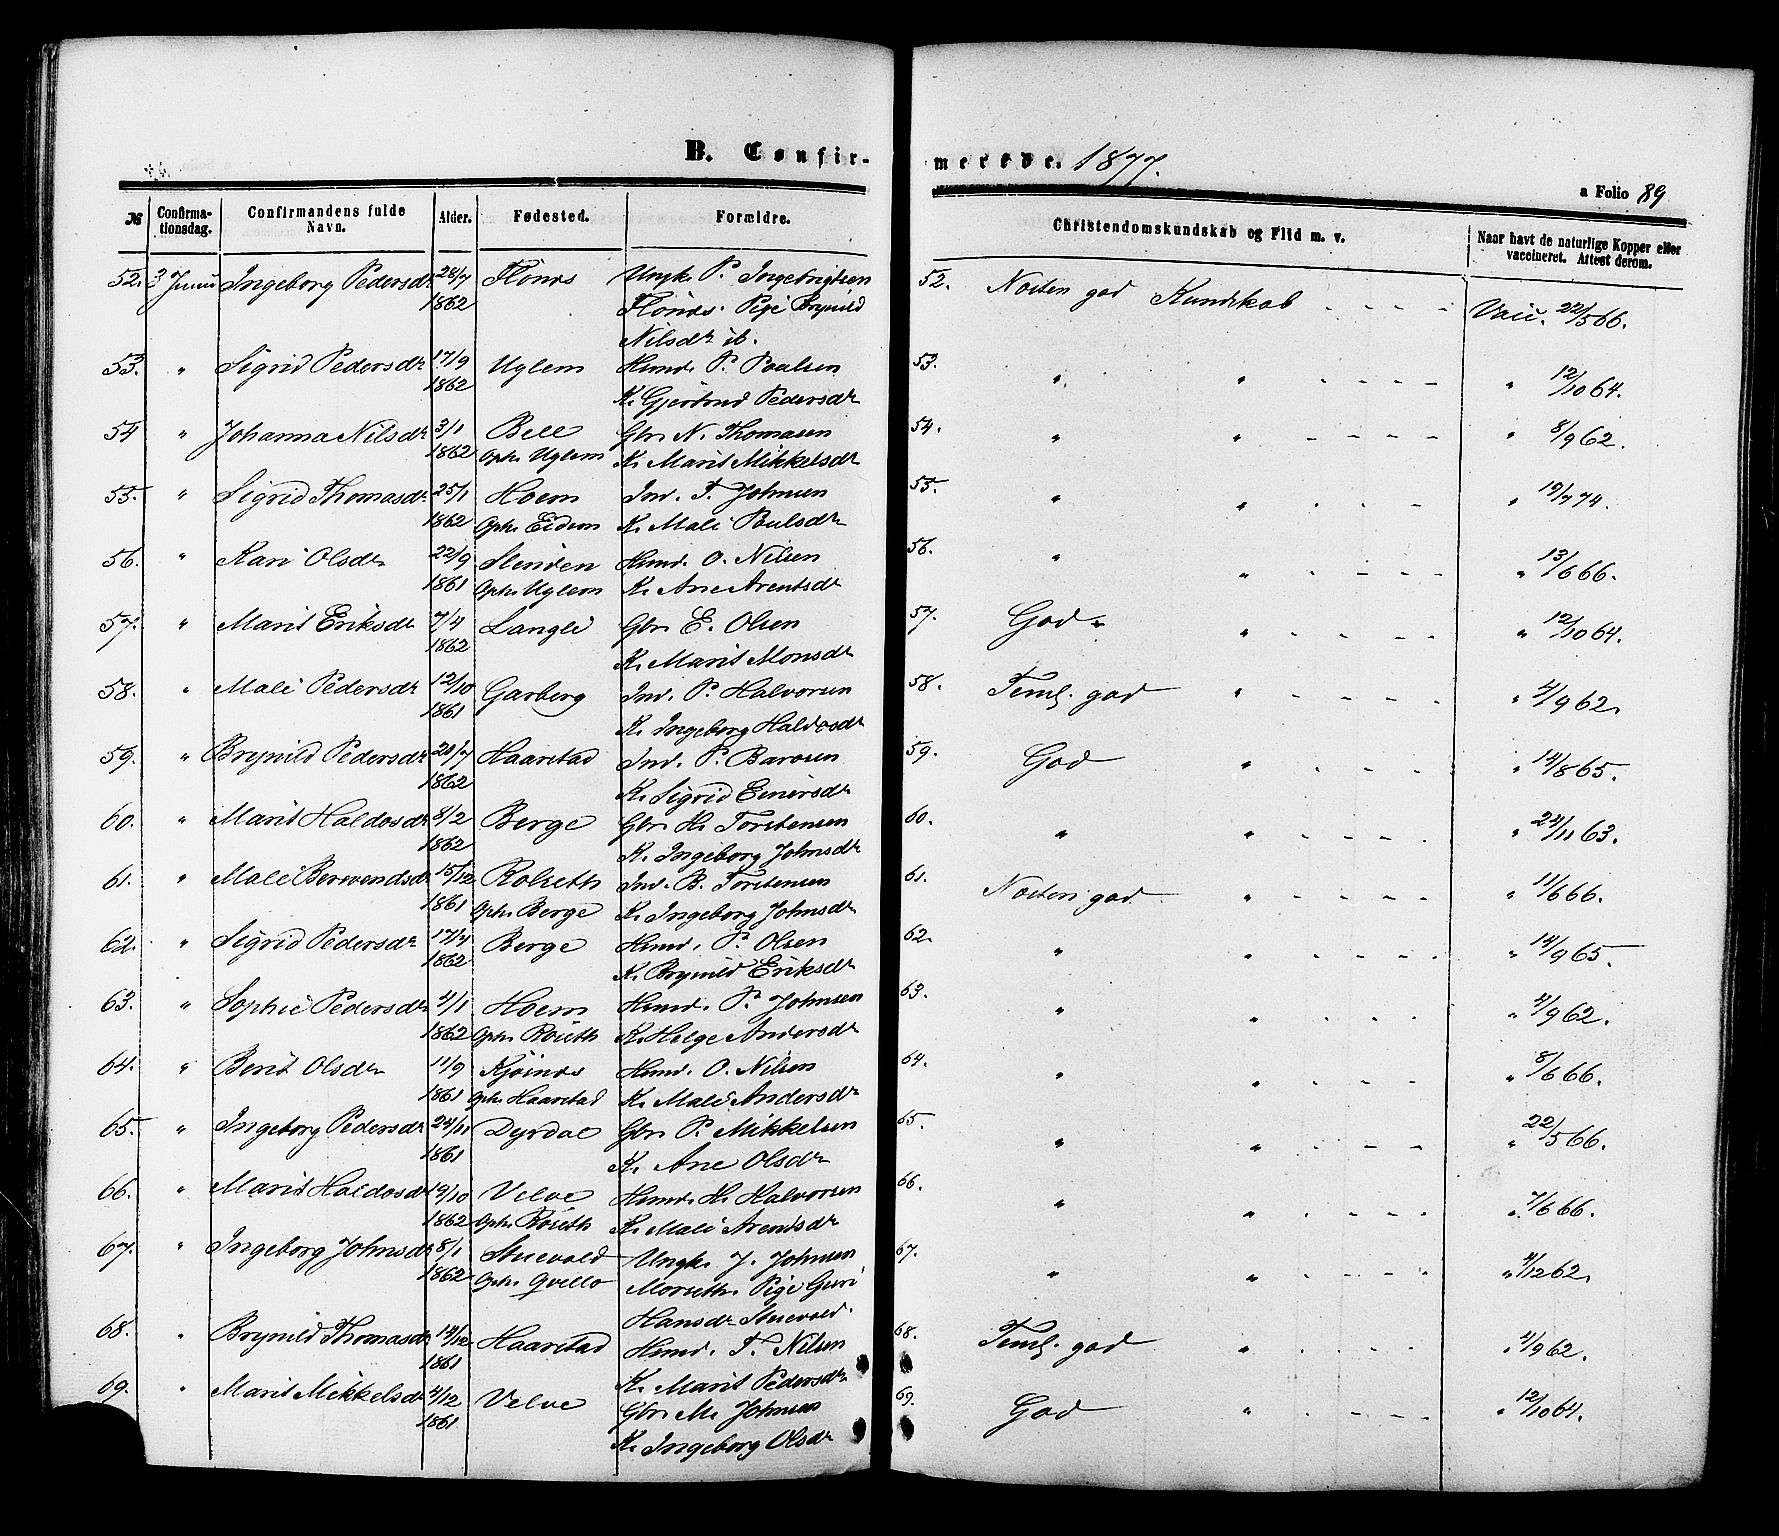 B. Confir-
No Confirmationsdag. Confirmandens fulde Navn. Alder. Fødested. Forældre.
52. 3 Juni Ingeborg Pedersdr 28/7 Flönæs Ungk. P. Ingebrigtsen
1862 Flönæs. Pige Brynild
Nilsdr ib.
53. " Sigrid Pedersdr 17/9 Uglem Hmd. P. Paulsen
1862 K. Gjertrud Pedersdr
54 " Johanna Nilsdr 3/1 Bell Gbr. N. Thomasen
1862 Oph. Uglem K. Marit Mikkelsdr
55. " Sigrid Thomasdr 25/1 Hoem Ind. T. Johnsen
1862 Oph. Eidem K. Mali Paulsdr
56. " Kari Olsdr 22/9 Slinden Hmd. O. Nilsen
1861 Oph. Uglem K. Ane Arentsdr
57. " Marit Eriksdr 7/4 Langli Gbr. E. Olsen
1862 K. Marit Monsdr
58. " Mali Pedersdr 12/10 Garberg Ind. P. Halvorsen
1861 K. Ingeborg Haldosdr
59. " Brynild Pedersdr 20/7 Haarstad Ind. P. Barosen
1862 K. Sigrid Einersdr
60. " Marit Haldosdr 8/2 Berge Gbr. H. Torstensen
1862 K. Ingeborg Johnsdr
61. " Mali Berwendsdr 15/12 Rolseth Ind. B. Torstensen
1861 Oph. Berge K. Ingeborg Johnsdr
62. " Sigrid Pedersdr 17/4 Berge Hmd. P. Olsen
1862 K. Brynild Eriksdr
63. " Sophie Pedersdr 4/1 Hoem Hmd. P. Johnsen
1862 Oph. Röseth K. Helge Andersdr
64. " Berit Olsdr 11/9 Kjösnæs Hmd. O. Nilsen
1861 Oph. Haarstad K. Mali Andersdr
65. " Ingeborg Pedersdr 24/11 Dyrdal Gbr. P. Mikkelsen
1861 K. Ane Olsdr
66. " Marit Haldosdr 19/10 Velve Hmd. H. Halvorsen
1862 Oph. Röseth K. Mali Arentsdr
67. " Ingeborg Johnsdr 8/1 Stuevold Ungk. J. Johnsen
1862 Oph. Qvello Morseth. Pige Guri
Hansdr Stuevold.
68. " Brynild Thomasdr 14/12 Haarstad Hmd. T. Nilsen
1861 K. Marit Pedersdr
69. " Marit Mikkelsdr 4/12 Velve Gbr. M. Johnsen
1861 K. Ingeborg Olsdr
merede. 1877.
a Folio 89
Christendomskundskab og Flid m. v. Naar havt de naturlige Kopper eller vaccineret. Attest derom.
52. Næsten god Kundskab . . . . Vacc. 22/5 66.
53. " " . - - - - " 12/10 64.
54. " " - - - - - " 8/9 62.
55. " " . . - - - " 19/7 74.
56. " " . - - - - " 13/6 66.
57. God " " . . - - - " 12/10 64.
58. Teml. god " . - - - " 4/9 62.
59. God " . . - - " 14/8 65.
60. " " . - . - " 24/11 63.
61. Næsten god " . - - - " 11/6 66.
62. " " . . - - . " 14/9 65.
63. " " . . . - " 4/9 62.
64. " " . . - - " 8/6 66.
65. " " . . - - " 22/5 66.
66. " " . . - - " 7/6 66.
67. " " . . - - " 4/12 62.
68. Teml. god " . - . - " 4/9 62.
69. God " . - - - " 12/10 64.